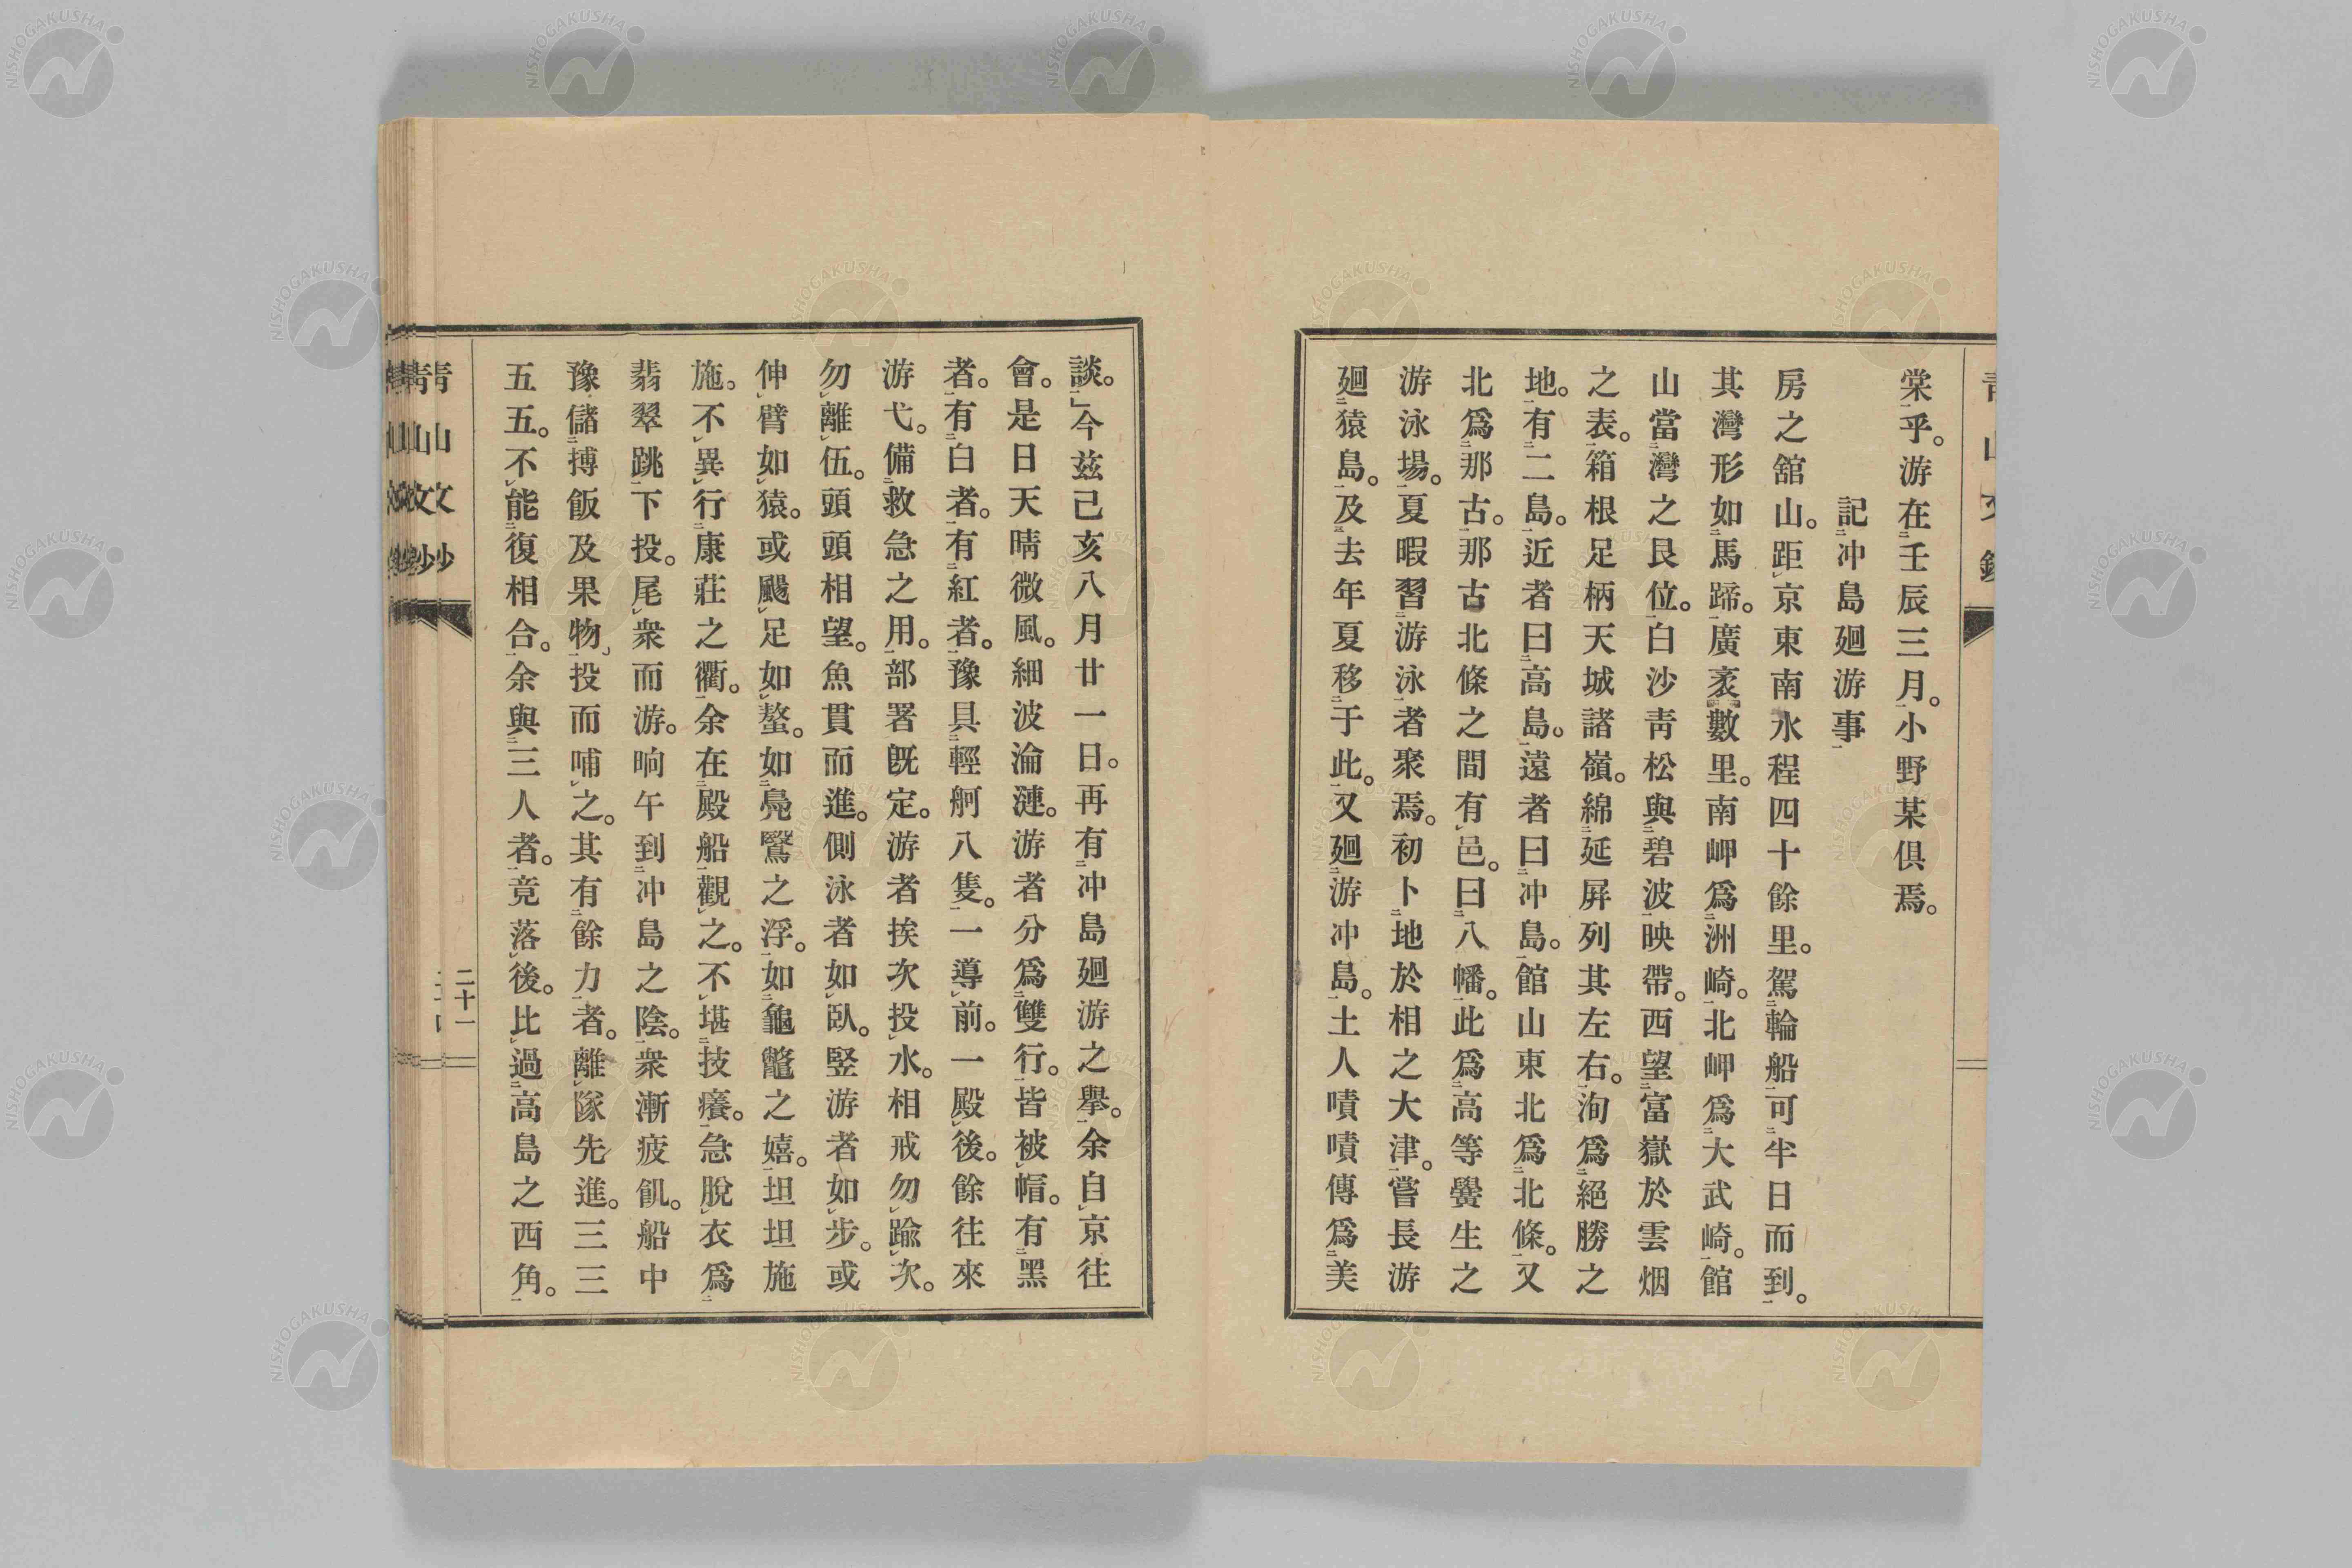 棠乎。游在壬辰三月。小野某俱焉。
記冲島廻游事
房之舘山。距京東南水程四十餘里。駕輪船可半日而到。
其灣形如馬蹄。廣袤數里。南岬爲洲崎。北岬爲大武崎。館
山當灣之艮位。白沙靑松與碧波映帶。西望富嶽於雲烟
之表。箱根足柄天城諸嶺。綿延屛列其左右。洵爲絕勝之
地。有二島。近者曰高島。遠者曰冲島。館山東北爲北條。又
北爲那古。那古北條之間有邑。曰八幡。此爲高等黌生之
游泳場。夏暇習游泳者聚焉。初卜地於相之大津。嘗長游
廻猿島。及去年夏移于此。又廻游冲島。土人嘖嘖傳爲美
談。今茲己亥八月廿一日。再有冲島廻游之擧。余自京往
會。是日天晴微風。細波淪漣。游者分爲雙行。皆被帽。有黑
者。有白者。有紅者。豫具輕舸八隻。一導前。一殿後。餘往來
游弋。備救急之用。部署旣定。游者挨次投水。相戒勿踰次。
勿離伍。頭頭相望。魚貫而進。側泳者如臥。竪游者如步。或
伸臂如猿。或颺足如螯。如鳧鷖之浮。如龜鼈之嬉。坦坦施
施。不異行康莊之衢。余在殿船觀之。不堪技癢。急脫衣爲
翡翠跳下投。尾衆而游。晌午到冲島之陰。衆漸疲飢。船中
豫儲搏飯及果物。投而哺之。其有餘力者。離隊先進。三三
五五。不能復相合。余與三人者。竟落後。比過高島之西角。
靑山文鈔
二十一
NISHOGAKUSHA